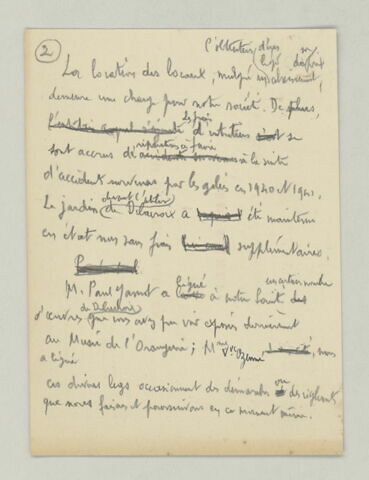 2
La location des locaux, malgré
demeure une charge pour notre société. De plus,
les frais
d'entretien se
réparations à faire
sont accrus de à la suite
d'accidents survenus par les gelées en 1940 et 1941.
devant l'atelier
Le jardin de Delacroix a été maintenu
en état mais sans frais supplémentaires.
légué un certain nombre
M. Paul Jamot a à notre Société des
de Delacroix
d'œuvres que vous avez pu voir exposées dernièrement
au Musée de l'Orangerie; Mme nous
a légué
ces divers legs occasionnent des démarches ou
que nous faisons et poursuivons en ce moment même.